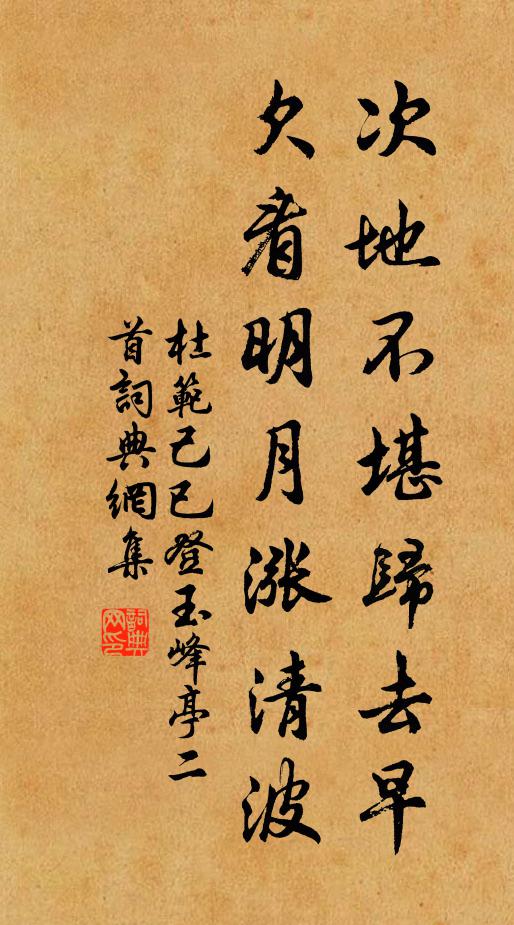 次地不堪歸去早
欠看明月漲清波
杜範己巳登玉峰亭二
首詞典網集
詞典網印